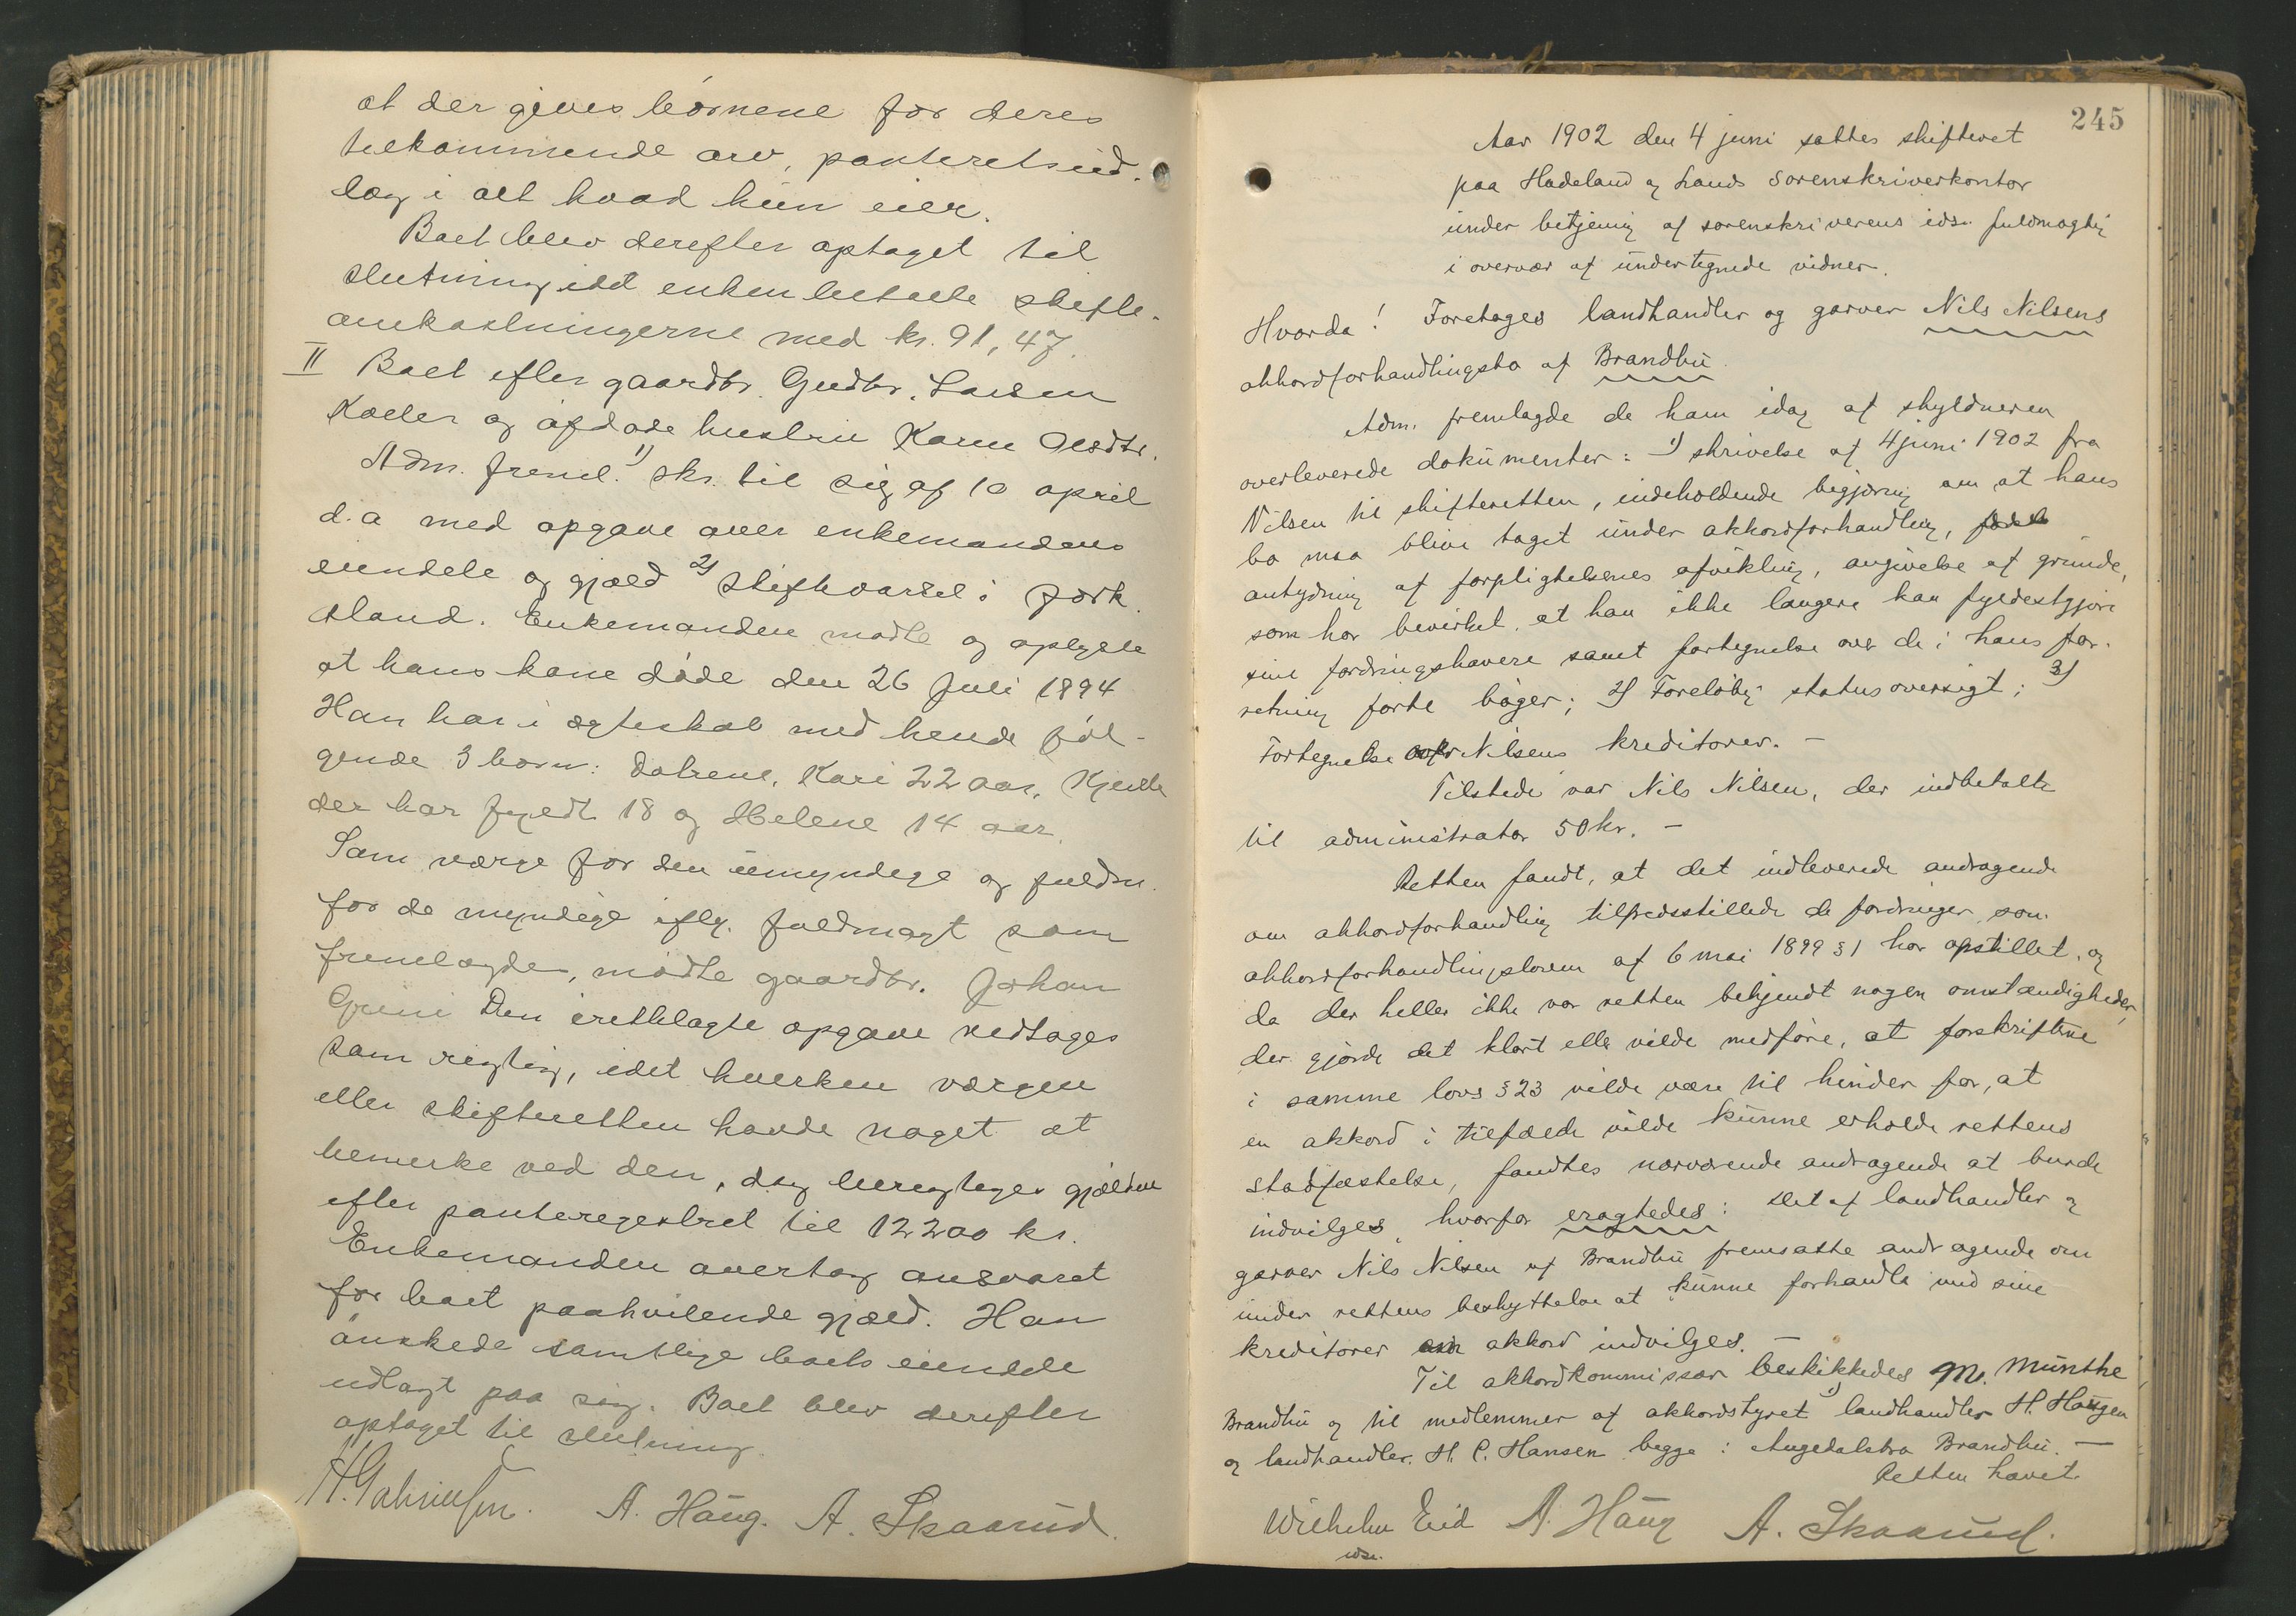 at der gives börnene for deres
tilkommende arv, panteretsud-
læg i alt hvad hun eier.
Boet blev derefter optaget til
slutning idet enken betalte skifte-
omkostningerne med kr. 91,47.
II Boet efter gaardbr. Gudbr. Larsen
og afdøde hustru Karen Olsdtr.
Adm. freml. 1) skr. til sig af 10 april
d.a med opgave over enkemandens
eiendele og gjæld 2) Skiftevarsel i fork.
stand. Enkemanden mødte og oplyste
at hans kone döde den 26 Juli 1894
Han har i ægteskab med hende föl-
gende 3 børn: Døtrene, Kari 22 aar,
der har fyldt 18 og Helene 14 aar.
Som værge for den umyndige og fuldm.
for de myndige iflg. fuldmagt som
fremlagdes, mödte gaardbr. Johan
Grini Den iretlagte opgave vedtages
som rigtig, idet hverken værgen
eller skifteretten havde noget at
bemerke ved den, dog berigtiges gjælden
efter panteregistret til 12200 kr.
Enkemanden overtog ansvaret
for boet paahvilende gjæld. Han
önskede samtlige boets eiendele
udlagt paa sig. Boet blev derefter
optaget til slutning.
A. Haug. A. Skaarud.
245
Aar 1902 den 4 juni sattes skifteret
paa Hadeland og Lands sorenskriverkontor
under betjening af sorenskriverens edsv. fuldmægtig
i overvær af undertegnede vidner.
Hvorda! Foretages landhandler og garver Nils Nilsens
akkordforhandlingsbo af Brandbu.
Adm. fremlagde de ham idag af skyldneren
overleverede dokumenter: 1) skrivelse af 4 juni 1902 fra
Nilsen til skifteretten, indeholdende begjæring om at hans
bo maa blive taget under akkordforhandling,
antydning af forpligtelsernes afvikling, angivelse af grunde,
som har bevirket, at han ikke længere kan fyldestgjøre
sine fordringshavere samt fortegnelse over de i hans for-
retning förte böger; 2) Forelöbig statusoversigt; 3)
Fortegnelse over Nilsens kreditorer. –
Tilstede var Nils Nilsen, der indbetalte
til administrator 50 kr. –
Retten fandt, at det indleverede andragende
om akkordforhandling tilfredsstillede de fordringer, som
akkordforhandlingsloven af 6 mai 1899 § 1 har opstillet, og
da der heller ikke var retten bekjendt nogen omstændigheder,
der gjorde det klart eller vilde medføre, at forskrifterne
i samme lovs § 23 vilde være til hinder for, at
en akkord i tilfælde vilde kunne erholde rettens
stadfæstelse, fandtes nærværende andragende at burde
indvilges, hvorfor eragtedes: Det af landhandler og
garver Nils Nilsen af Brandbu fremsatte andragende om
under rettens beskyttelse at kunne forhandle med sine
kreditorer om akkord indvilges. –
Til akkordkommissær beskikkedes M. Munthe
Brandbu og til medlemmer af akkordstyret 1) landhandler H. Haugen
og landhandler H. C. Hansen begge i Augedalsbro Brandbu. –
Retten hævet.
Wilhelm Eid A. Haug A. Skaarud.
edsv.